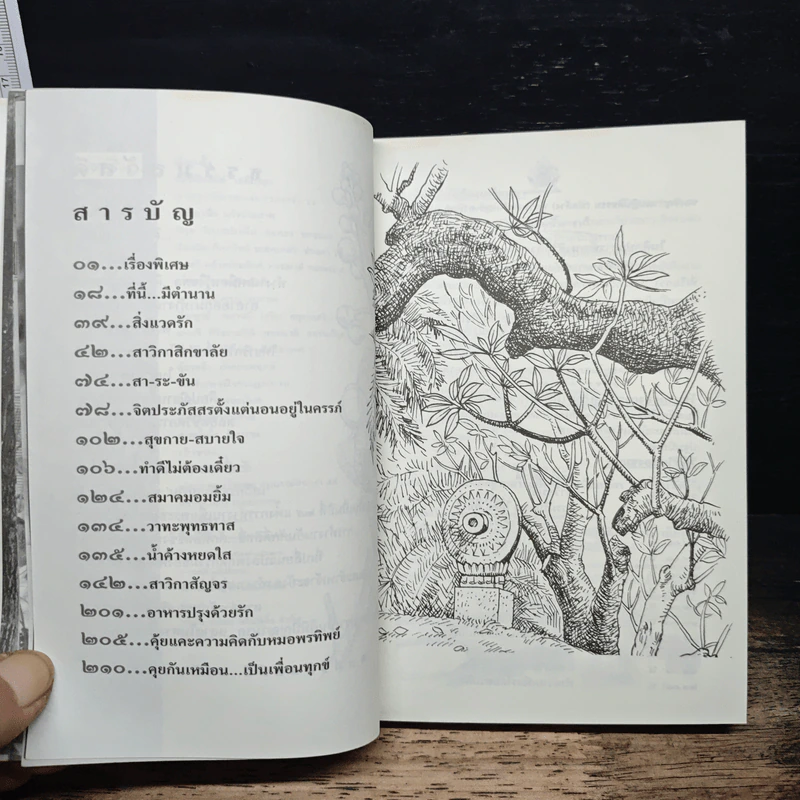 สารบัญ
๐๑...เรื่องพิเศษ
๑๘...ที่นี้...มีตำนาน
๓๙...สิ่งแวดรัก
๔๒...สาวิกาสิกขาลัย
๗๔...สา-ระ-ขัน
๗๘...จิตประภัสสรตั้งแต่นอนอยู่ในครรภ์
๑๐๒...สุขกาย-สบายใจ
๑๐๖...ทำดีไม่ต้องเดี๋ยว
๑๒๔...สมาคมอมยิ้ม
๑๓๔...วาทะพุทธทาส
๑๓๕...น้ำค้างหยดใส
๑๔๒...สาวิกาสัญจร
๒๐๑...อาหารปรุงด้วยรัก
๒๐๕...คุ้ยแคะความคิดกับหมอพรทิพย์
๒๑๐...คุยกันเหมือน...เป็นเพื่อนทุกข์